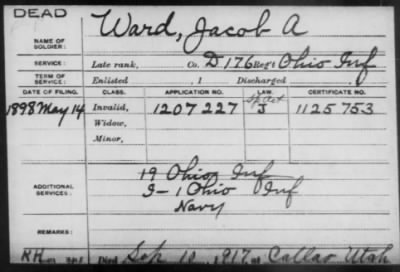 DEAD
NAME OF SOLDIER: Ward, Jacob A
SERVICE: Late rank, Co. D 176 Reg't Ohio Inf
TERM OF SERVICE: Enlisted , 1 Discharged , 1
DATE OF FILING. CLASS. APPLICATION NO. LAW. CERTIFICATE NO.
1898 May 14 Invalid, 1207227 J 1125753
Widow,
Minor,
19 Ohio Inf
ADDITIONAL SERVICES: 1 Ohio Inf
Navy
REMARKS:
Died Sep 10, 1917, at Callao Utah